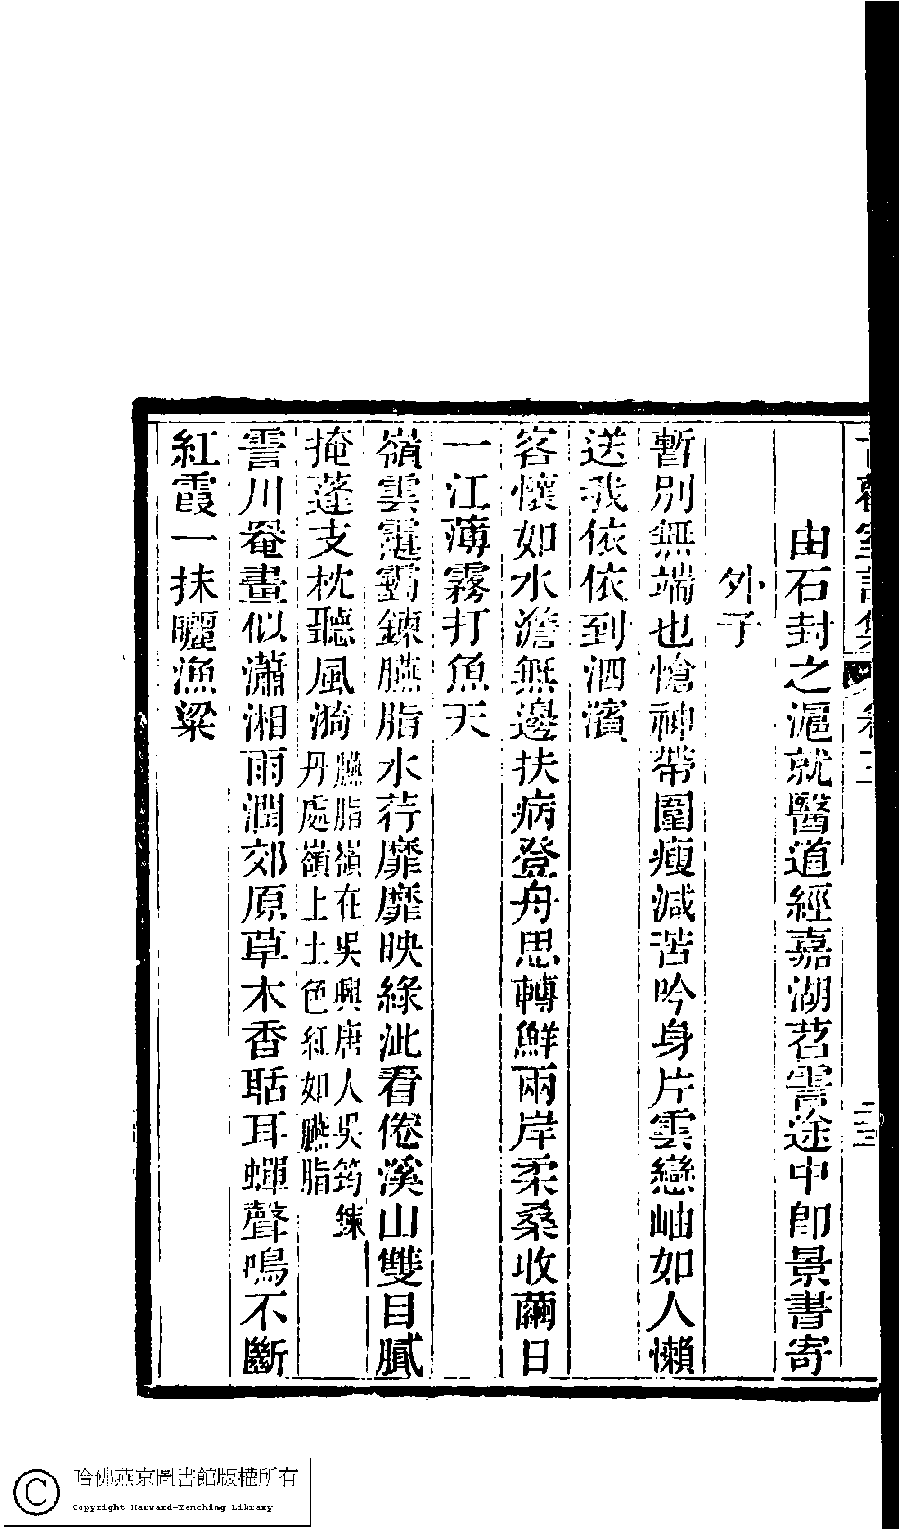 由石封之滬就醫道經嘉湖苕霅途中卽景書寄
外子
暫別無端也愴神帶圍瘦減苦吟身片雲戀岫如人懶
送我依依到泗濱
客懷如水澹無邊扶病登舟思轉鮮兩岸柔桑收繭日
一江薄霧打魚天
嶺雲靉靆鍊臙脂水荇靡靡映綠漪看倦溪山雙目膩
掩蓬支枕聽風漪
臙脂嶺在吳興唐人吳筠鍊
丹處嶺上土色紅如臙脂
霅川罨畫似瀟湘雨潤郊原草木香聒耳蟬聲鳴不斷
紅霞一抹曬漁粱
室詩集
卷二
哈佛燕京圖書館版權所有
Copyright Harvard-Yenching Library